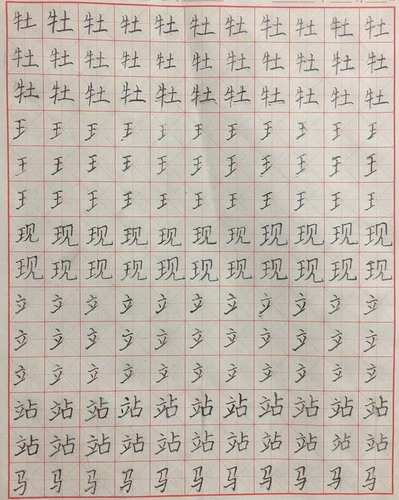 牡牡牡牡牡牡牡牡牡牡牡
牡牡牡牡牡牡牡牡牡牡牡
牡牡牡牡牡牡牡牡牡牡牡
王王王王王王王王王王王
王王王王王王王王王王王
王王王王王王王王王王王
现现现现现现现现现现现
现现现现现现现现现现现
立立立立立立立立立立立
立立立立立立立立立立立
立立立立立立立立立立立
站站站站站站站站站站站
站站站站站站站站站站站
马马马马马马马马马马马